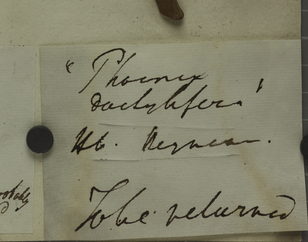 "Phoenix
dactylifera"
Hb.
To be returned